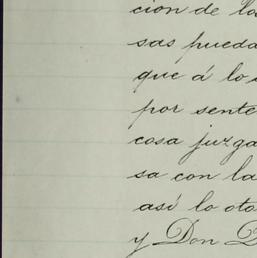 cion de la
sas pueda
que á lo
por sente
cosa juzga
sa con la
así lo oto
y Don